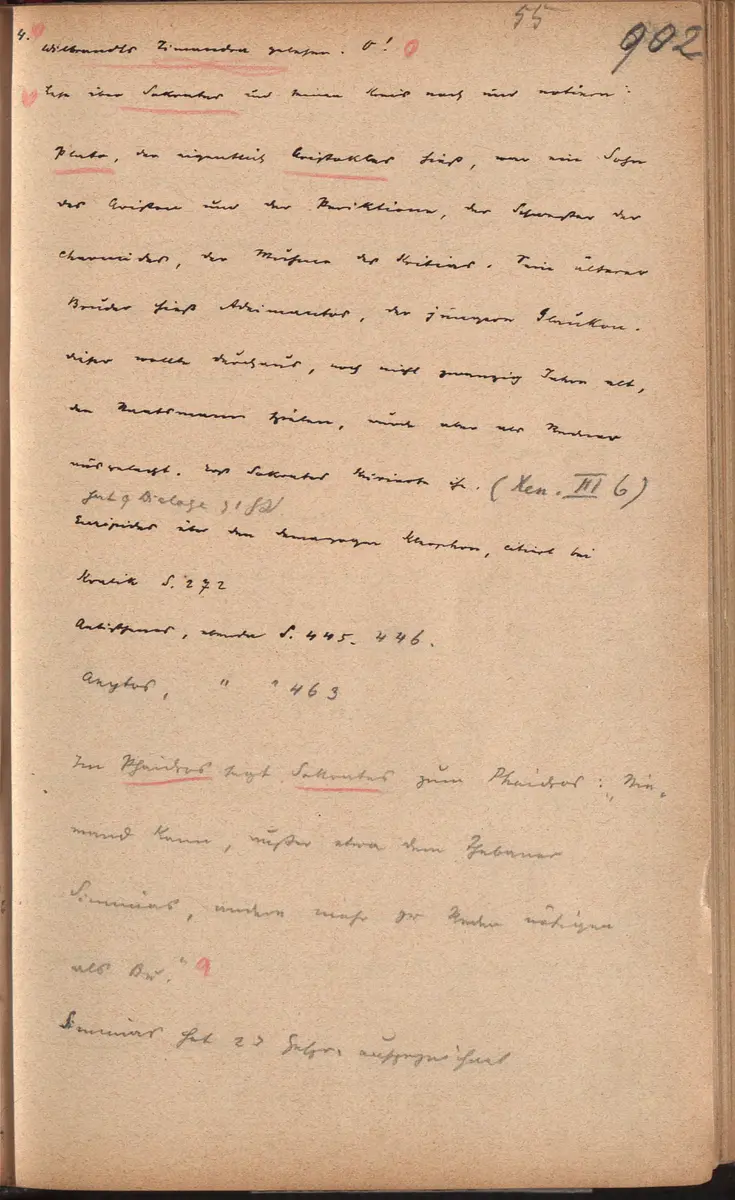 55
902
4.
Wilbrandts Timandra gelesen. O!
Lese über Sokrates und seinen Kreis nach und notiere:
Plato, der eigentlich Aristokles hieß, war ein Sohn
des Ariston und der Periktione, der Schwester des
Charmides, der Muhme des Kritias. Sein älterer
Bruder hieß Adeimantos, der jüngere Glaukon.
dieser wollte durchaus, noch nicht zwanzig Jahre alt,
den Staatsmann spielen, wurde aber als Redner
ausgelacht. Sokrates kurierte ihn. (Xen. III 6)
hat 9 Dialoge
Euripides über den Demagogen Kleophon, citiert bei
Kralik S. 272
Antisthenes, ebenda S. 445. 446.
Anytos, " " 463
Im Phaidros sagt Sokrates zum Phaidros: „Nie-
mand kann, außer etwa dem Thebaner
Simmias, andere mehr zu Reden nötigen
als Du."
Simmias hat 23 aufgezeichnet